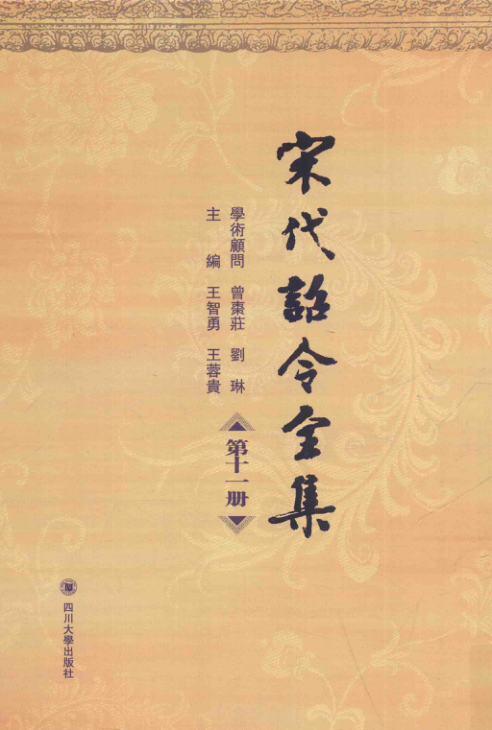 宋代詔令全集
學術顧問 曾棗莊 劉琳
主編 王智勇 王蓉貴
第十一册
四川大學出版社